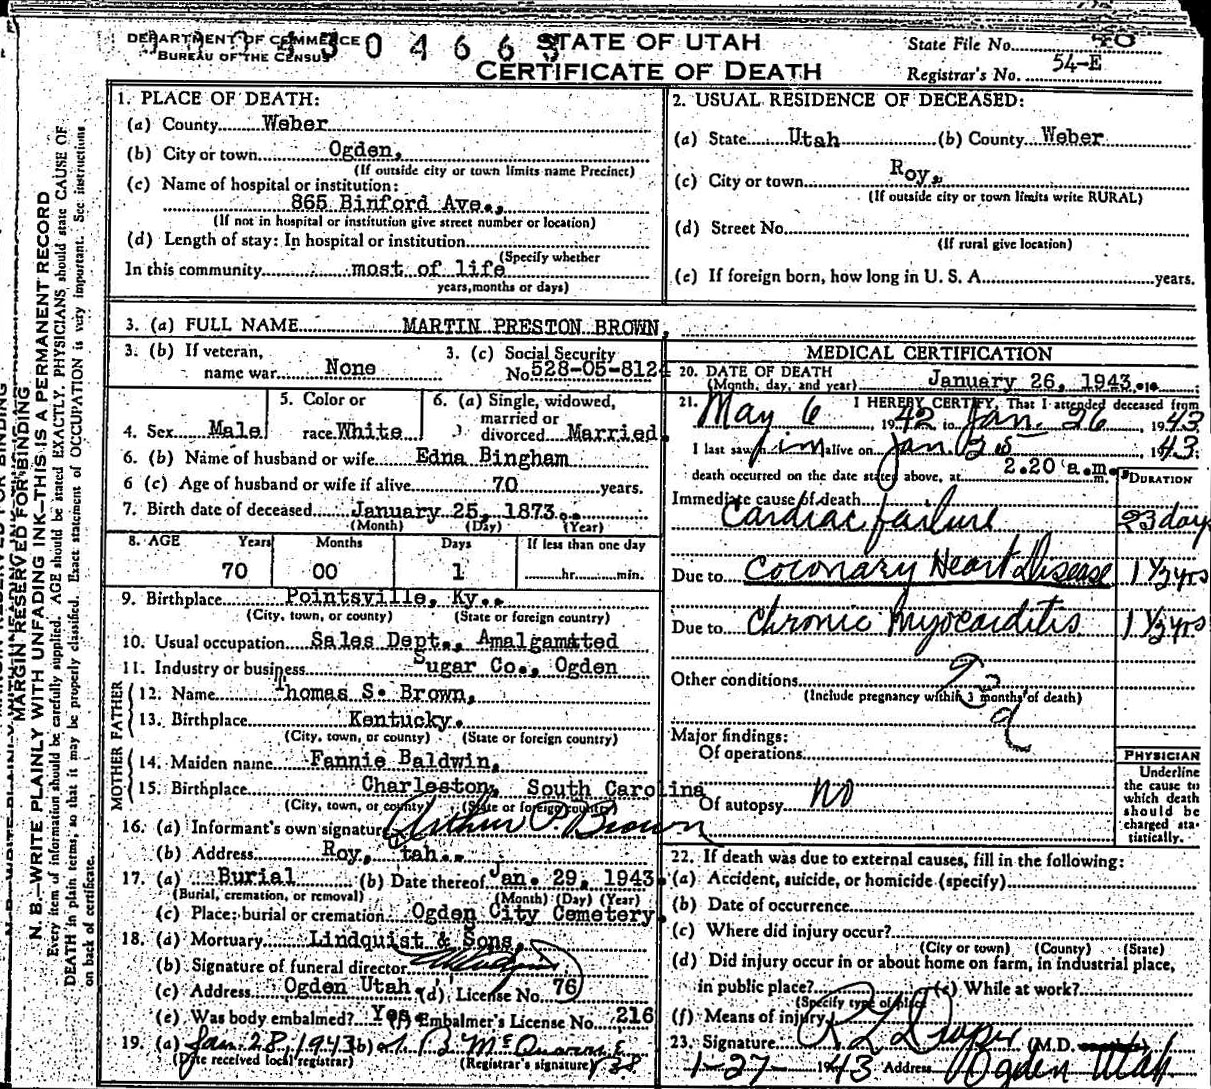 DEPARTMENT OF COMMERCE
BUREAU OF THE CENSUS
30466
STATE OF UTAH
CERTIFICATE OF DEATH
State File No. 40
Registrar's No. 54-E
MARGIN RESERVED FOR BINDING
N. B.—WRITE PLAINLY WITH UNFADING INK—THIS IS A PERMANENT RECORD
Every item of information should be carefully supplied. AGE should be stated EXACTLY. PHYSICIANS should state CAUSE OF
DEATH in plain terms, so that it may be properly classified. Exact statement of OCCUPATION is very important. See instructions
on back of certificate.
1. PLACE OF DEATH:
(a) County Weber
(b) City or town Ogden,
(If outside city or town limits name Precinct)
(c) Name of hospital or institution:
865 Binford Ave.,
(If not in hospital or institution give street number or location)
(d) Length of stay: In hospital or institution
(Specify whether
In this community most of life
years, months or days)
2. USUAL RESIDENCE OF DECEASED:
(a) State Utah (b) County Weber
(c) City or town Roy,
(If outside city or town limits write RURAL)
(d) Street No.
(If rural give location)
(e) If foreign born, how long in U. S. A. years.
3. (a) FULL NAME MARTIN PRESTON BROWN,
3. (b) If veteran,
name war None
3. (c) Social Security
No. 528-05-8124
4. Sex Male
5. Color or
race White
6. (a) Single, widowed,
married or
divorced Married.
6. (b) Name of husband or wife Edna Bingham
6 (c) Age of husband or wife if alive 70 years.
7. Birth date of deceased January 25, 1873..
(Month) (Day) (Year)
8. AGE Years Months Days If less than one day
70 00 1 hr. min.
9. Birthplace Pointsville, Ky..
(City, town, or county) (State or foreign country)
10. Usual occupation Sales Dept., Amalgamated
11. Industry or business Sugar Co., Ogden
FATHER
12. Name Thomas S. Brown,
13. Birthplace Kentucky.
(City, town, or county) (State or foreign country)
MOTHER
14. Maiden name Fannie Baldwin,
15. Birthplace Charleston, South Carolina
(City, town, or county) (State or foreign country)
16. (a) Informant's own signature Arthur P. Brown
(b) Address Roy, tah..
17. (a) Burial (b) Date thereof Jan. 29, 1943.
(Burial, cremation, or removal) (Month) (Day) (Year)
(c) Place: burial or cremation Ogden City Cemetery.
18. (a) Mortuary Lindquist & Sons,
(b) Signature of funeral director
(c) Address Ogden Utah (d) License No. 76
(e) Was body embalmed? Yes. (f) Embalmer's License No. 216
19. (a) Jan. 28, 1943 (b)
(Date received local registrar) (Registrar's signature)
MEDICAL CERTIFICATION
20. DATE OF DEATH
(Month, day, and year) January 26, 1943.
21. I HEREBY CERTIFY, That I attended deceased from
May 6, 1942 to Jan. 26, 1943
I last saw him alive on Jan. 25 1943;
death occurred on the date stated above, at 2.20 a.m.
DURATION
Immediate cause of death
Cardiac failure 23 days
Due to Coronary Heart Disease 1 1/2 yrs
Due to Chronic Myocarditis 1 1/2 yrs
Other conditions
(Include pregnancy within 3 months of death)
Major findings:
Of operations
Of autopsy no
PHYSICIAN
Underline
the cause to
which death
should be
charged sta-
tistically.
22. If death was due to external causes, fill in the following:
(a) Accident, suicide, or homicide (specify)
(b) Date of occurrence
(c) Where did injury occur?
(City or town) (County) (State)
(d) Did injury occur in or about home on farm, in industrial place,
in public place? (e) While at work?
(Specify type of place)
(f) Means of injury
23. Signature R L Draper (M.D.
1-27-1943 Address Ogden Utah